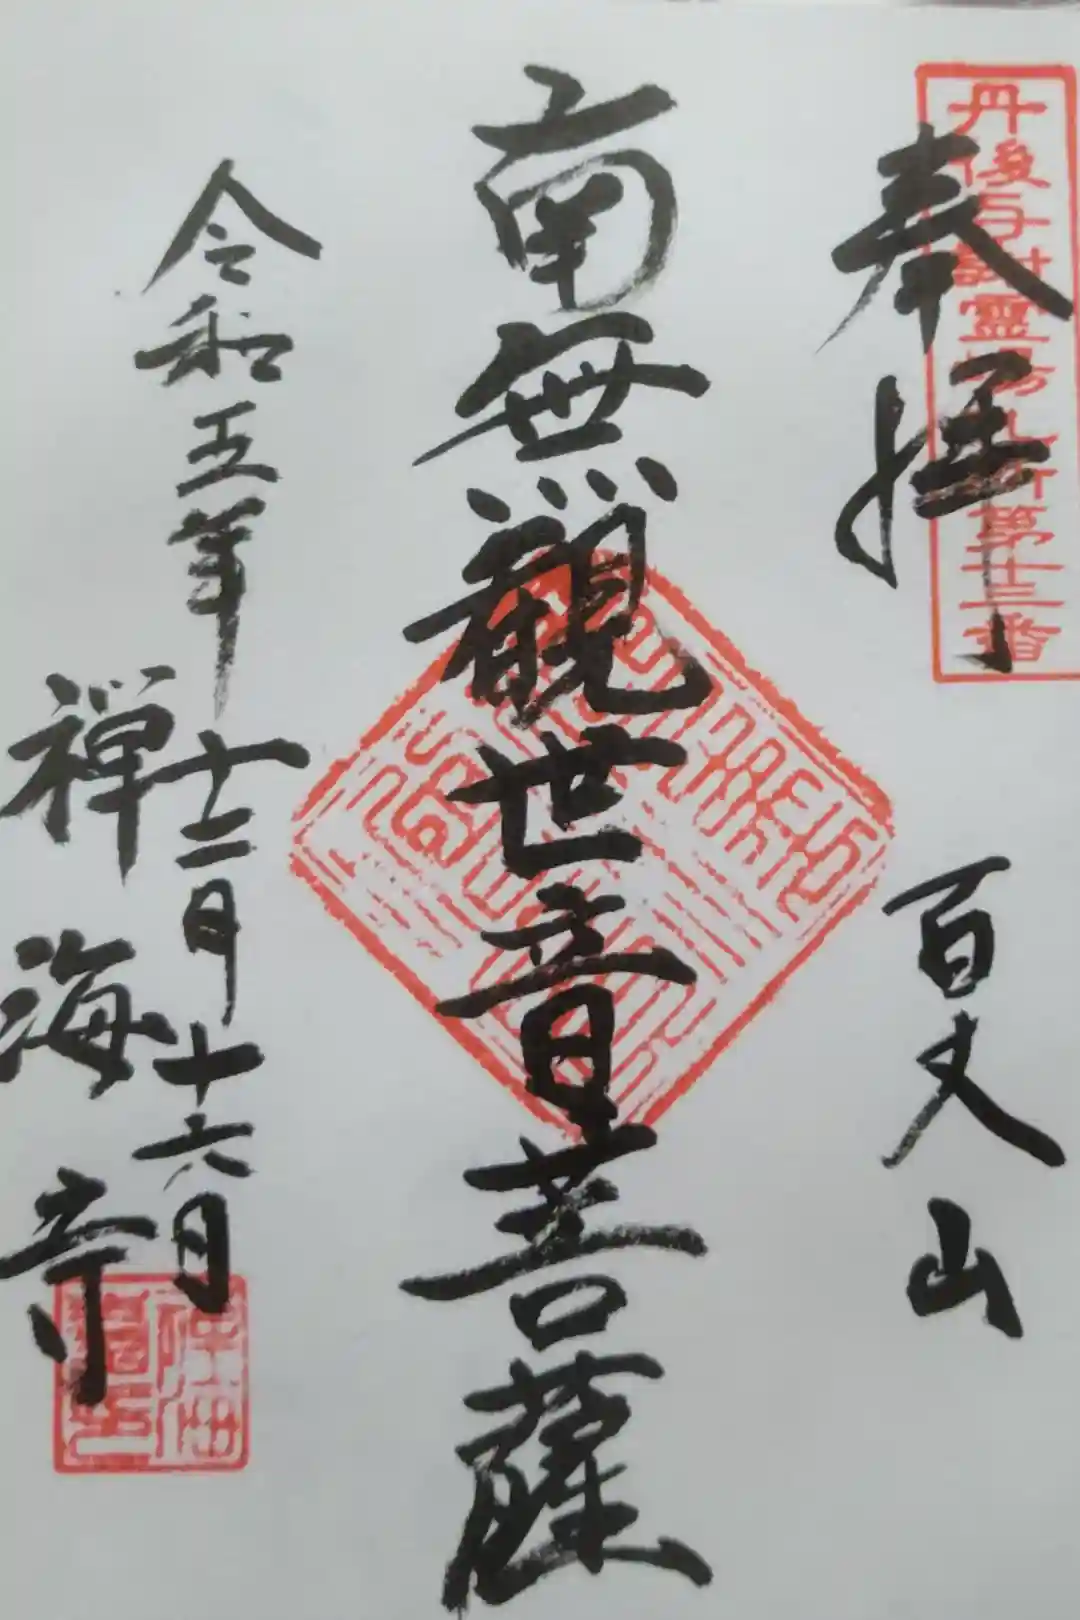 丹後与謝霊場札所第十三番
奉拝
百丈山
南無観世音菩薩
令和五年十二月十六日
禅海寺